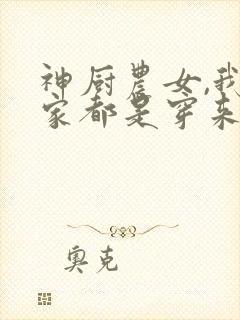 神厨農女,我
家都是穿来
奥克